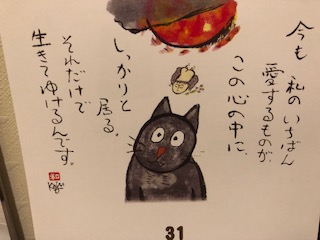 今も 私のいちばん
愛するものが、
この心の中に、
しっかりと
居る。
それだけで
生きてゆけるんです。
31